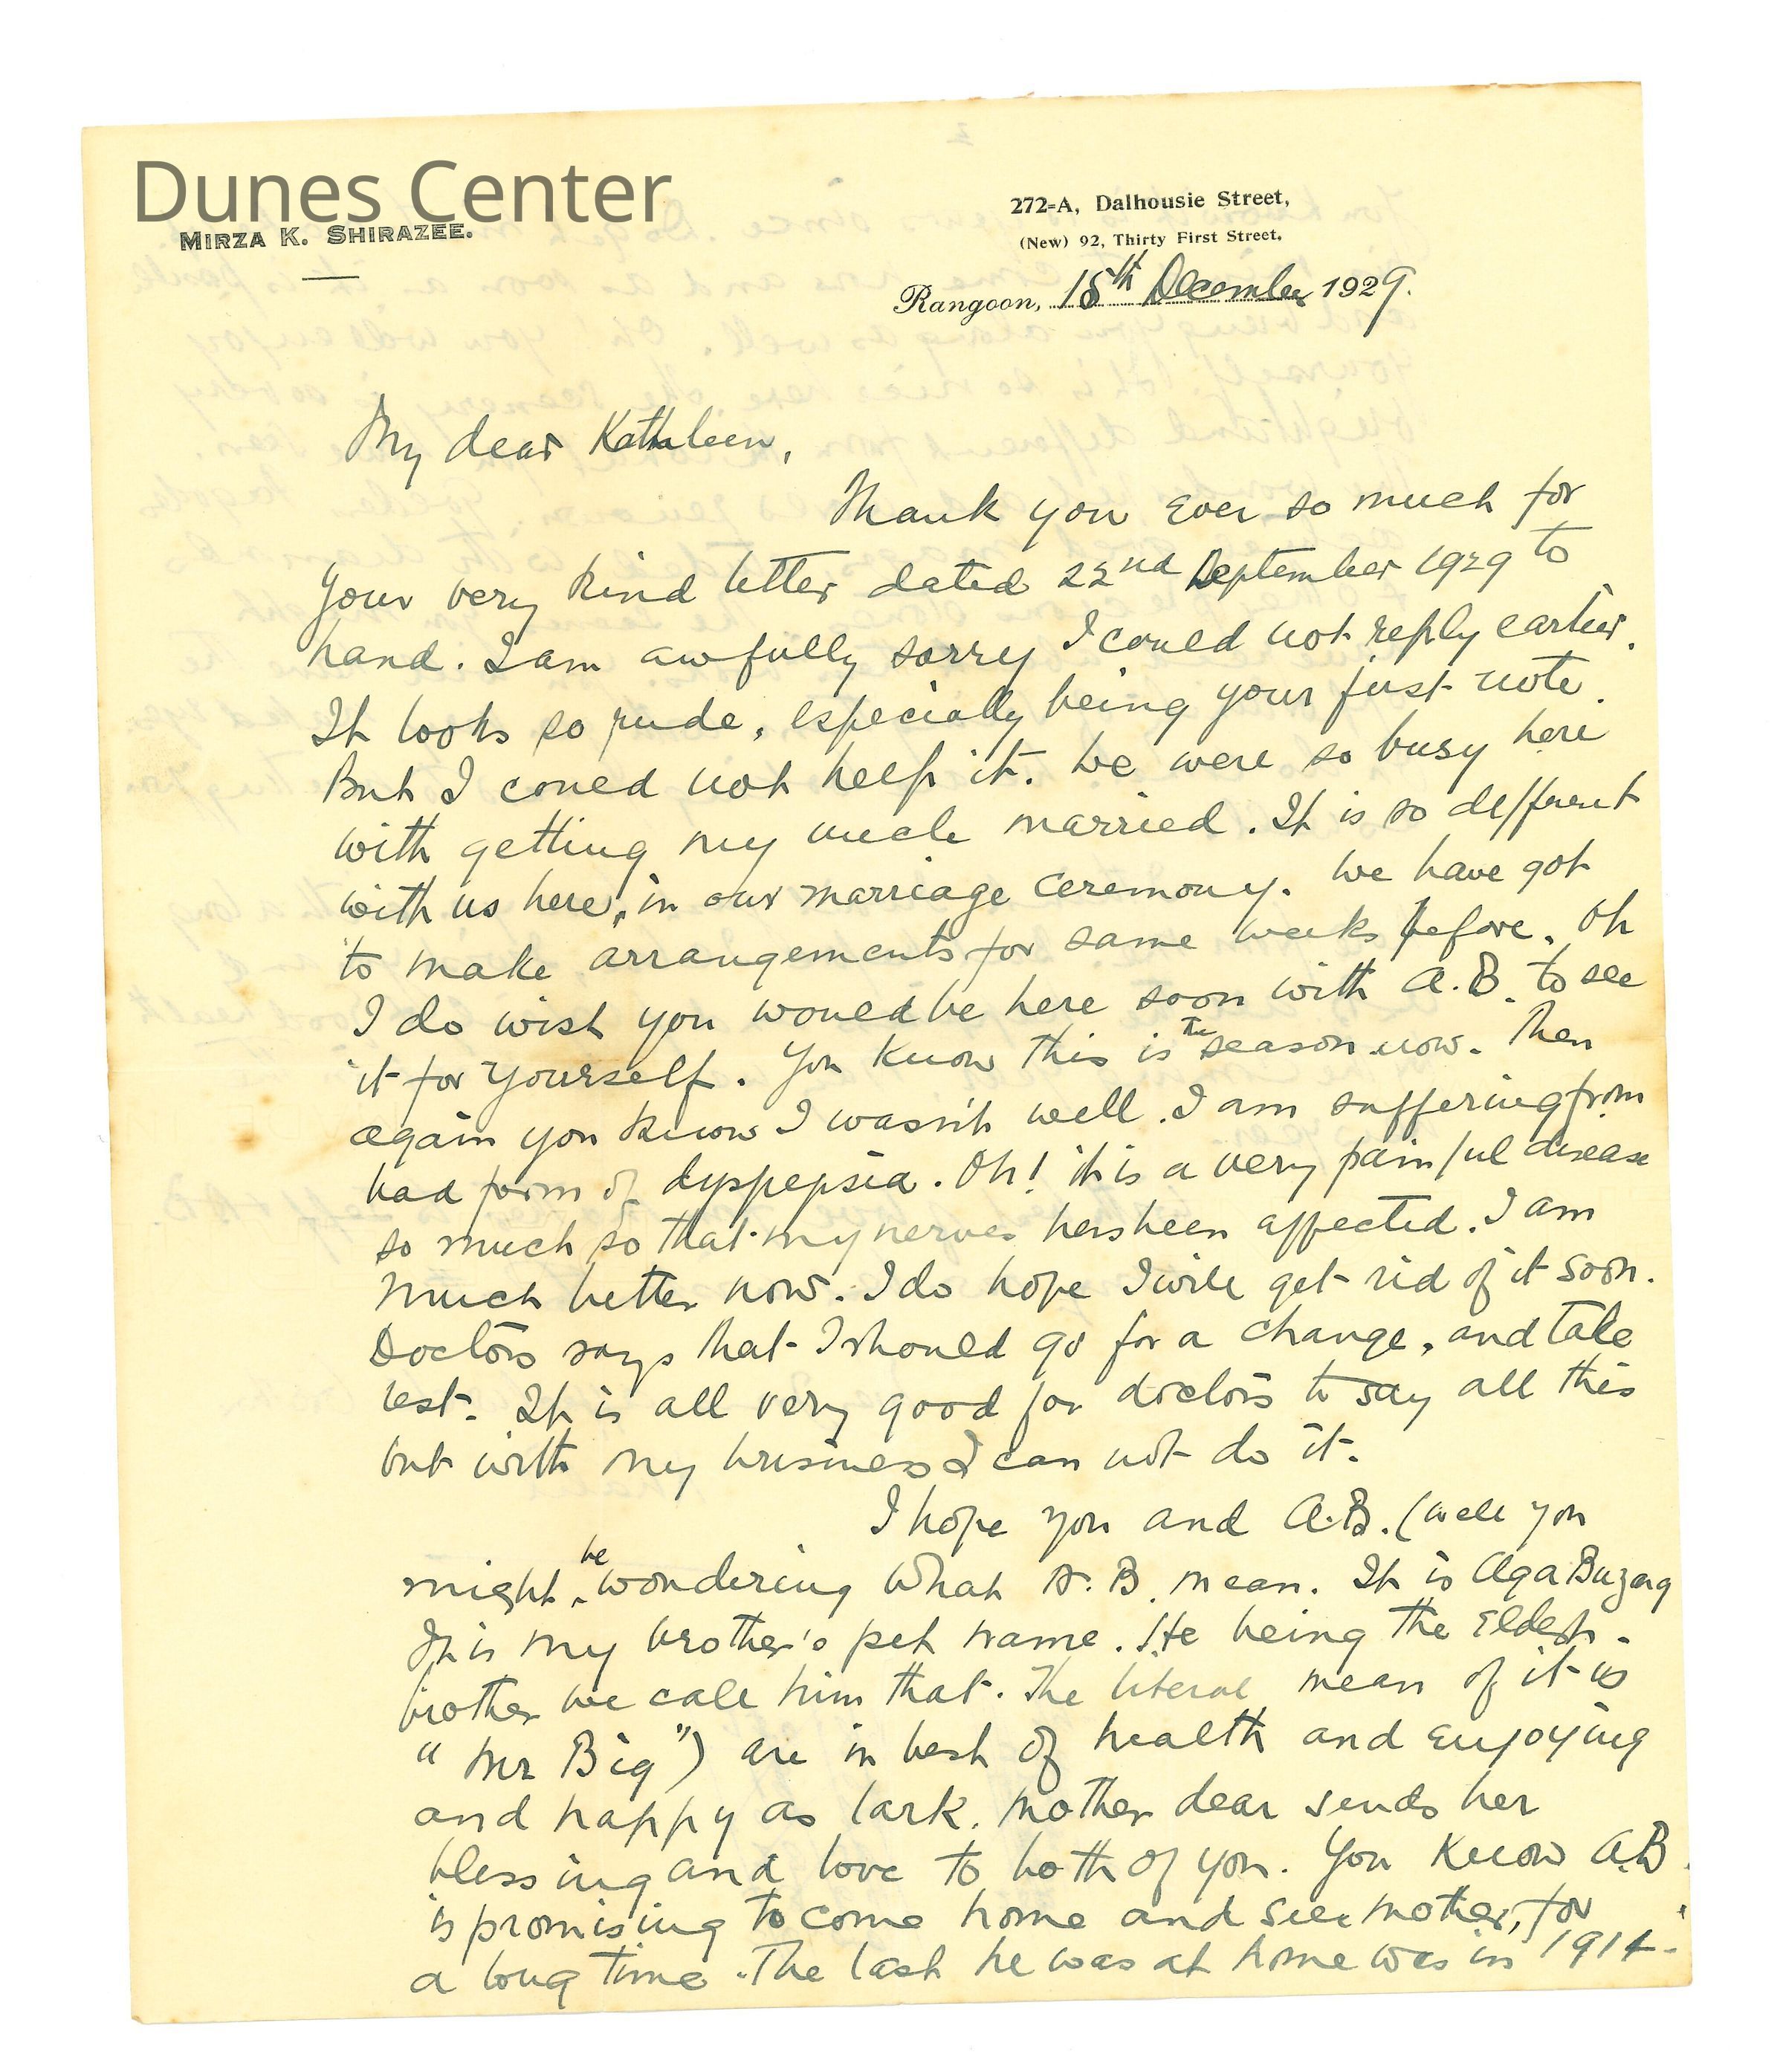 Dunes Center
MIRZA K. SHIRAZEE.
272-A, Dalhousie Street,
(New) 92, Thirty First Street,
Rangoon, 15th December 1929.
My dear Kathleen,
Thank you ever so much for
your very kind letter dated 22nd September 1929 to
hand. I am awfully sorry I could not reply earlier.
It looks so rude, especially being your first note.
But I could not help it. We were so busy here
with getting my uncle married. It is so different
with us here, in our marriage ceremony. We have got
to make arrangements for same weeks before. Oh
I do wish you would be here soon with A.B. to see
it for yourself. You know this is the season now. Then
again you know I wasn't well. I am suffering from
bad form of dyspepsia. Oh! it is a very painful disease
so much so that my nerves has been affected. I am
much better now. I do hope I will get rid of it soon.
Doctors says that I should go for a change, and take
rest. It is all very good for doctors to say all this
but with my business I can not do it.
I hope you and A.B. (well you
might be wondering what A.B. mean. It is Aga Buzorg
It is my brother's pet name. He being the eldest
brother we call him that. The literal mean of it is
"Mr Big") are in best of health and enjoying
and happy as lark. Mother dear sends her
blessing and love to both of you. You know A.B.
is promising to come home and see mother, for
a long time. The last he was at home was in 1914.